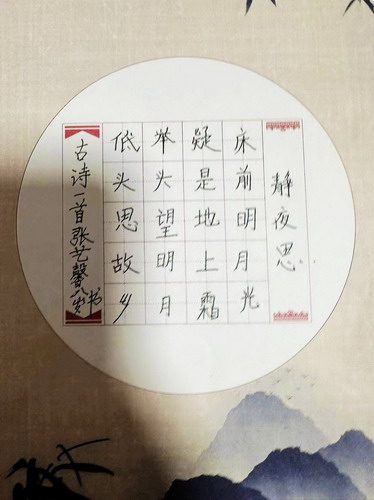 静夜思
床前明月光
疑是地上霜
举头望明月
低头思故乡
古诗一首张艺馨八岁书